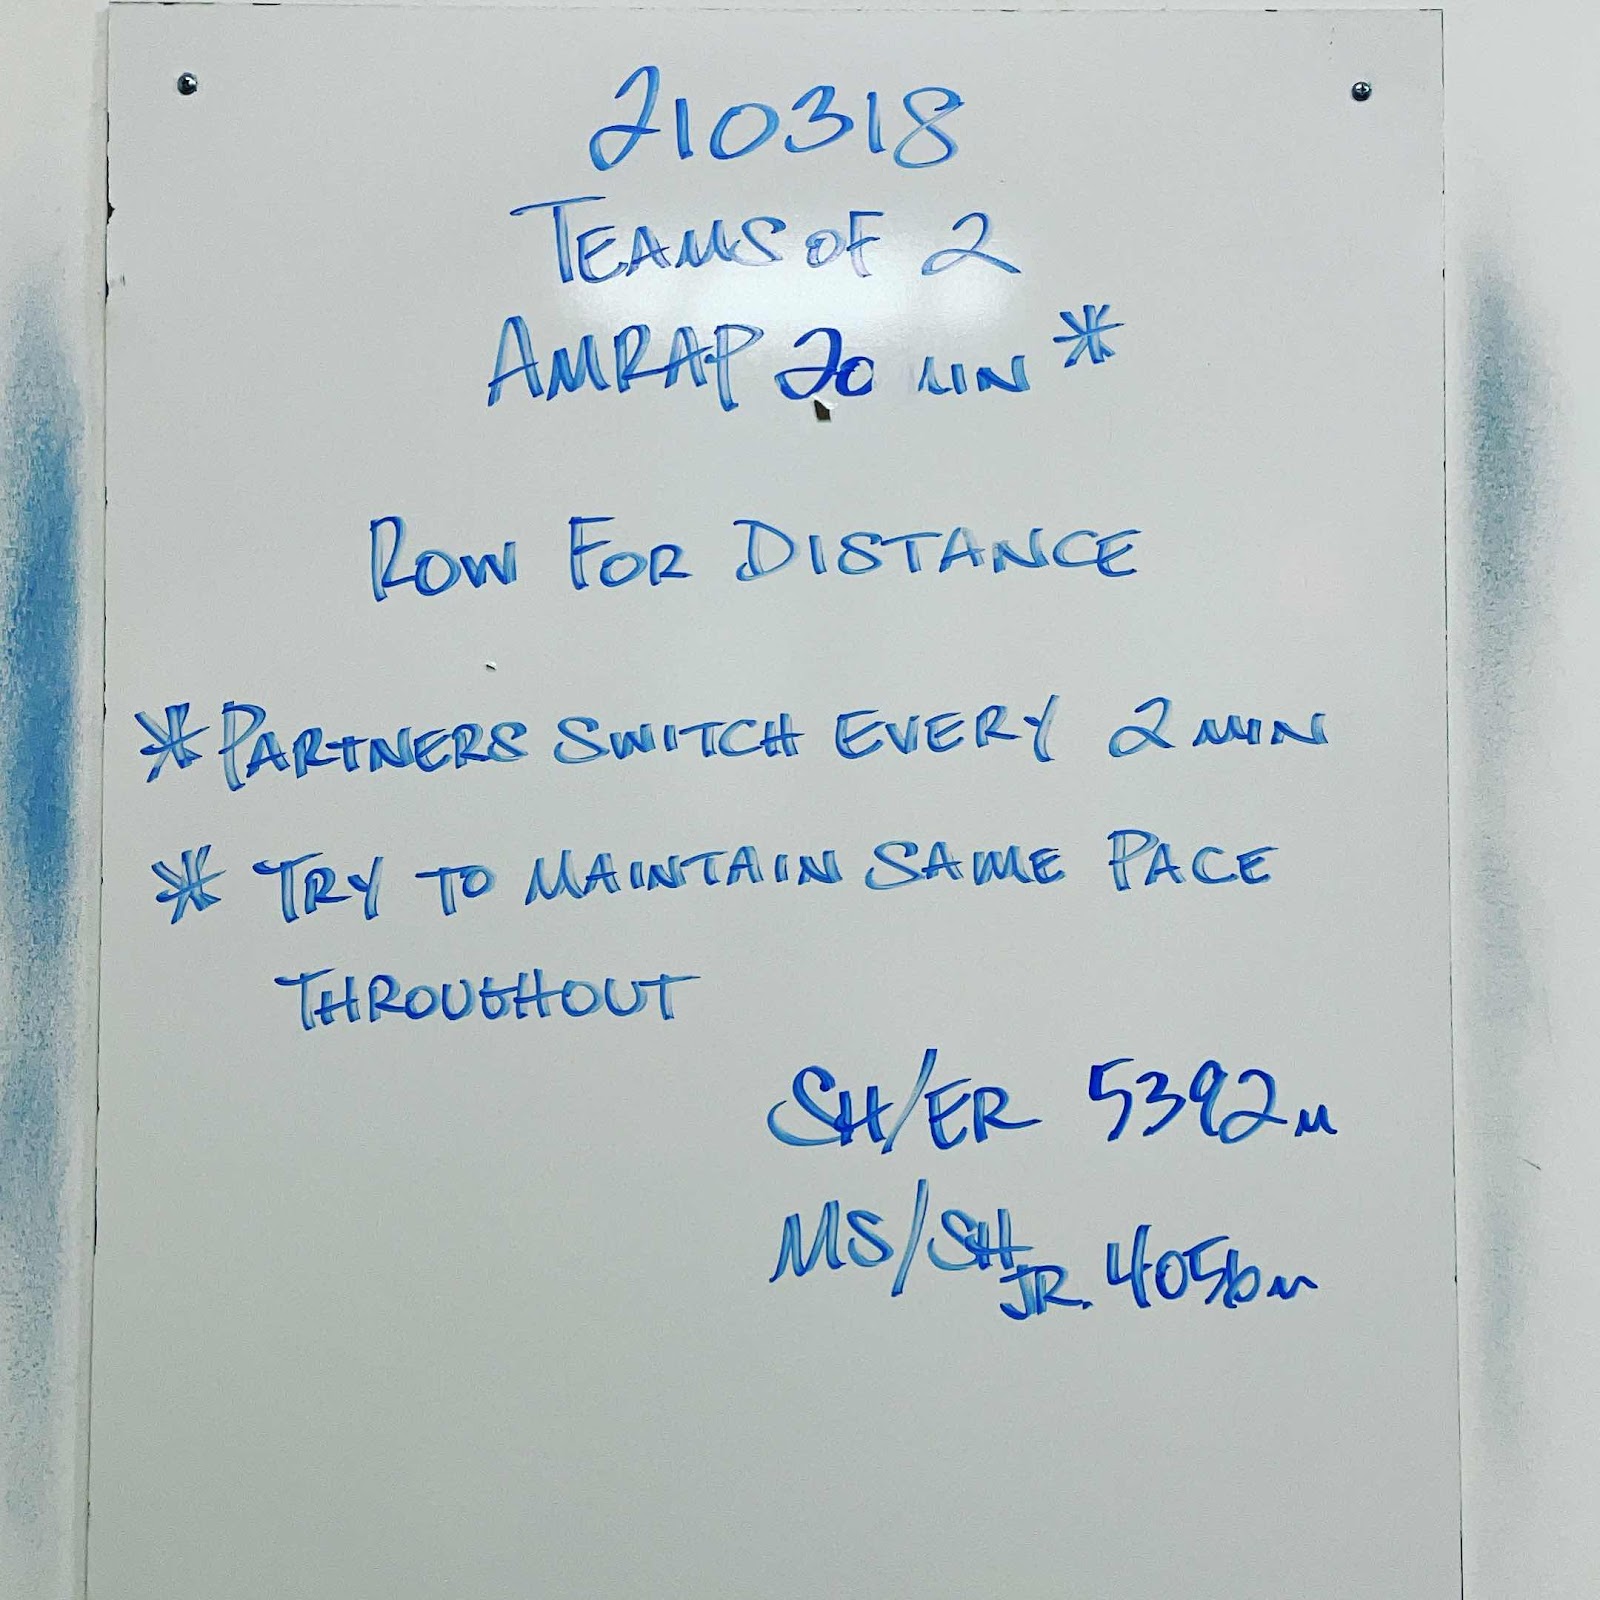 210318
TEAMS OF 2
AMRAP 20 MIN *
ROW FOR DISTANCE
* PARTNERS SWITCH EVERY 2 MIN
* TRY TO MAINTAIN SAME PACE
THROUGHOUT
SH/ER 5392M
MS/SH JR. 4056M